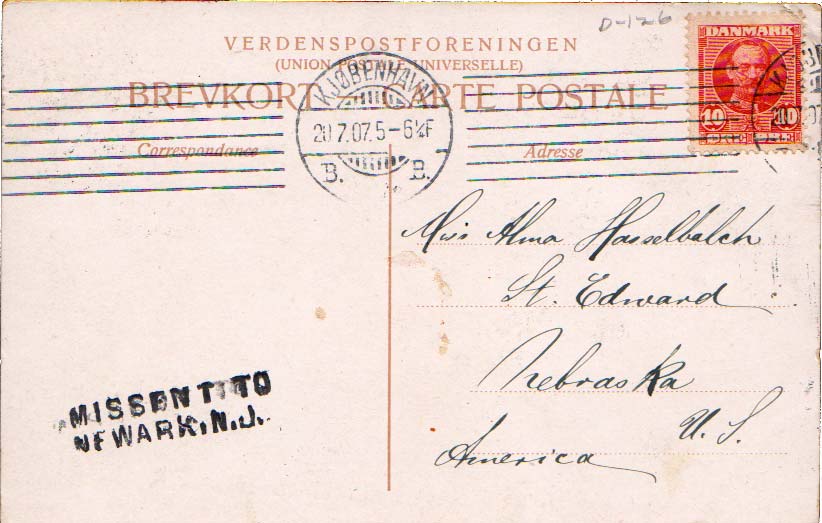 D-126
DANMARK
10 10
VERDENSPOSTFORENINGEN
(UNION POSTALE UNIVERSELLE)
BREVKORT CARTE POSTALE
KJØBENHAVN
20.7.07.5-6½F
B. B.
Correspondance
Adresse
Miss Alma Hasselbalch
St. Edward
Nebraska
U. S.
America
MISSENT TO
NEWARK. N. J.